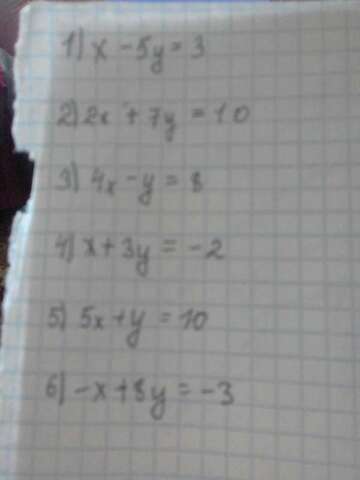 1) x - 5y = 3
2) 2x + 7y = 10
3) 4x - y = 8
4) x + 3y = -2
5) 5x + y = 10
6) -x + 8y = -3